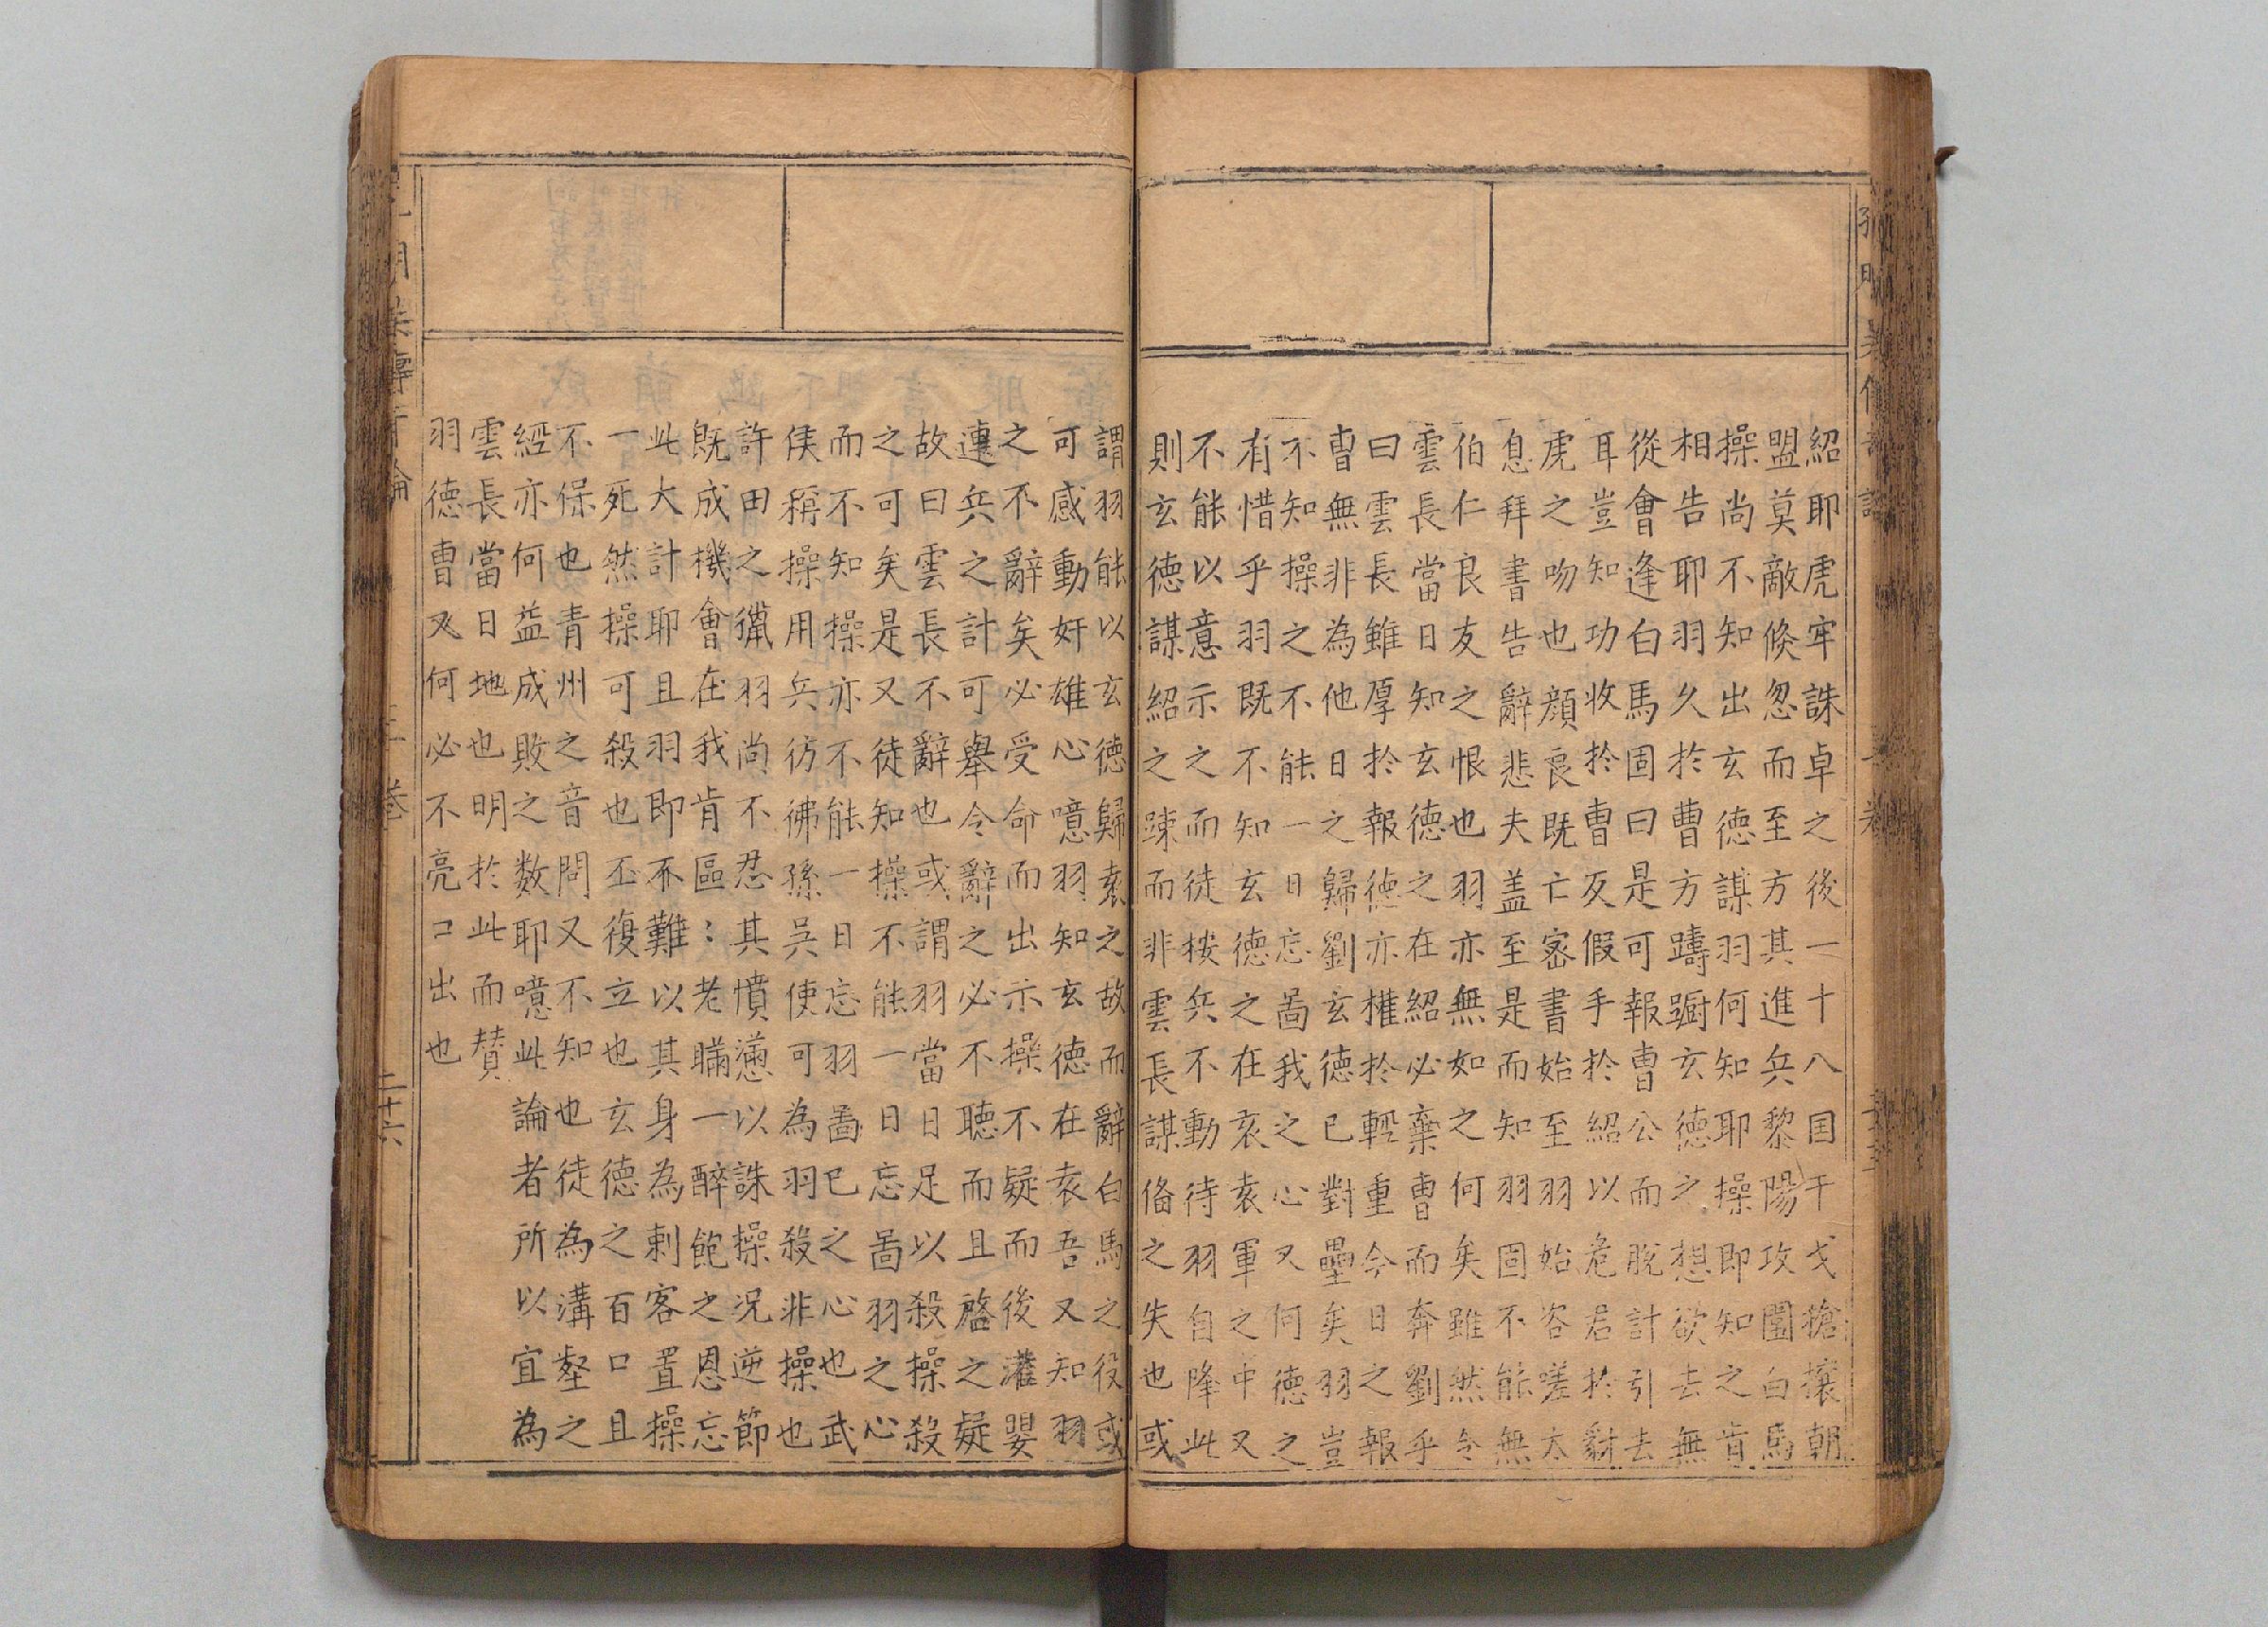 紹耶虎牢誅卓之後一十八国干戈搶攘朝
盟莫敵倐忽而至方其進兵黎陽攻圍白馬
操尚不知出玄德謀羽何知耶操即知之肯
相告耶羽久於曹方躊躕玄德之想欲去無
從會逢白馬固曰是可報曹公而脫計引去
耳豈知功收於曹反假手於紹以危君於豺
虎之吻也顏良既亡宻書始至羽始咨嗟太
息拜書告辭悲夫盖至是而知羽固不能無
伯仁良友之恨也羽亦無如之何矣雖然令
雲長當日知玄德之在紹必棄曹而奔劉乎
曰雲長雖厚於報德亦權於輕重今日之報
曹無非為他日之歸劉玄德已對壘矣羽豈
不知操之不能一日忘啚我之心又何德之
有惜乎羽既不知玄德之在袁軍之中又
不能以意示之而徒按兵不動待羽自降此
則玄德謀紹之踈而非雲長謀俻之失也或
謂羽能以玄德歸袁之故而辭白馬之役或
可感動奸雄心噫羽知玄德在袁吾又知羽
之不辭矣必受命而出示操不疑而後灌嬰
連兵之計可舉今辭之必不聽而且啓之疑
故曰雲長不辭也或謂羽當日足以殺操殺
之可矣是又徒知操不能一日忘啚羽之心
而不知操亦不能一日忘羽啚已之心也武
侯稱操用兵彷彿孫吳使可為羽殺非操也
許田之獵羽尚不忍其憤懣以誅操况逆節
既成機會在我肯區:老瞞一醉飽之恩忘
此大計耶且羽即不難以其身為刺客置操
一死然操可殺也丕復立也玄德之百口且
不保也青州之音問又不知也徒為溝壑之
經亦何益成敗之数耶噫此論者所以宜為
雲長當日地也明於此而賛
羽德曹又何必不亮口出也